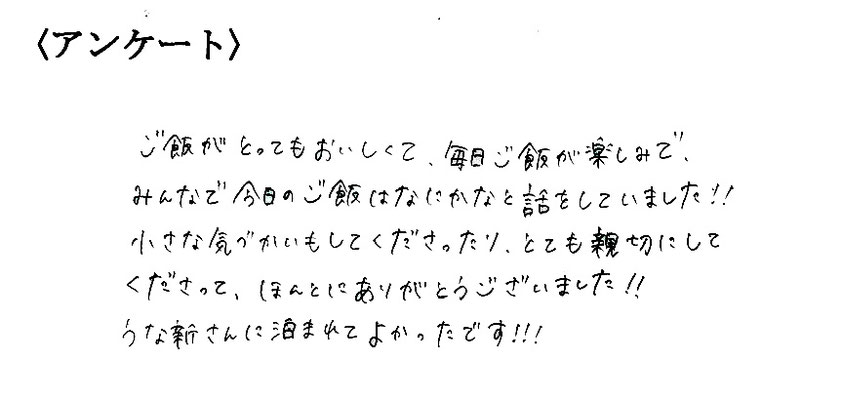 〈アンケート〉
ご飯がとってもおいしくて、毎日ご飯が楽しみで、
みんなで今日のご飯はなにかなと話をしていました!!
小さな気づかいもしてくださったり、とても親切にして
くださって、ほんとにありがとうございました!!
うな新さんに泊まれてよかったです!!!